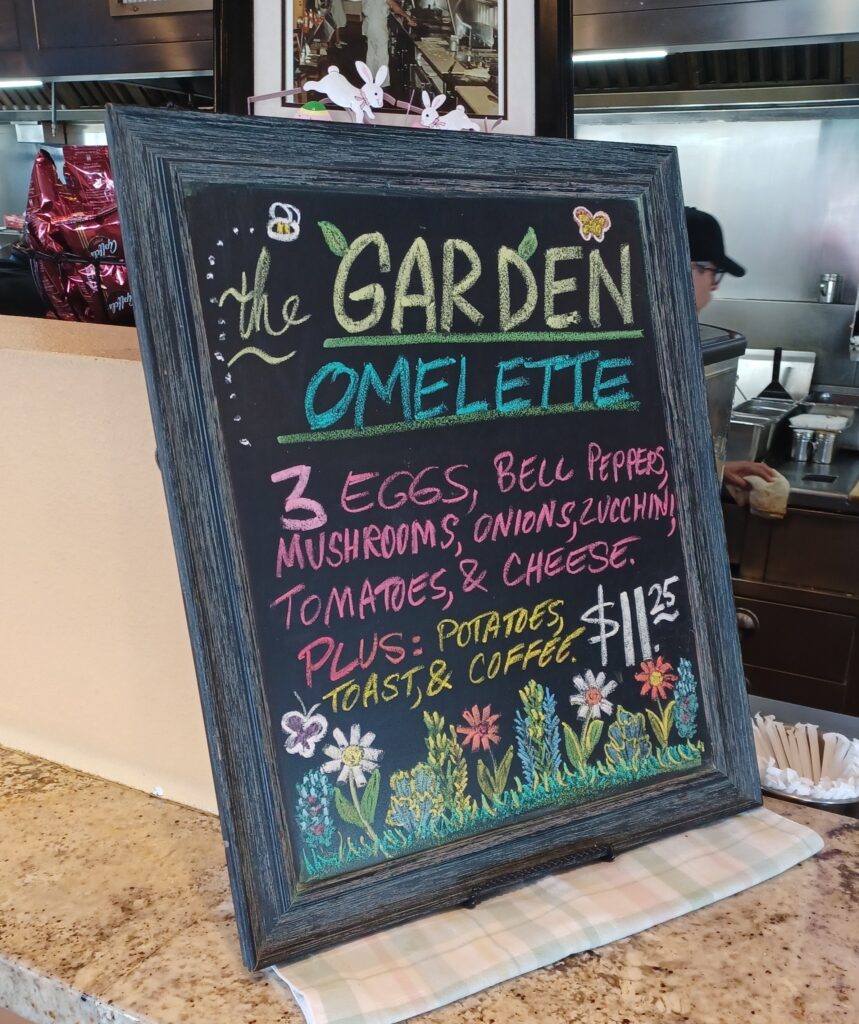 the GARDEN
OMELETTE
3 EGGS, BELL PEPPERS,
MUSHROOMS, ONIONS, ZUCCHINI,
TOMATOES, & CHEESE.
PLUS: POTATOES,
TOAST, & COFFEE. $11.25